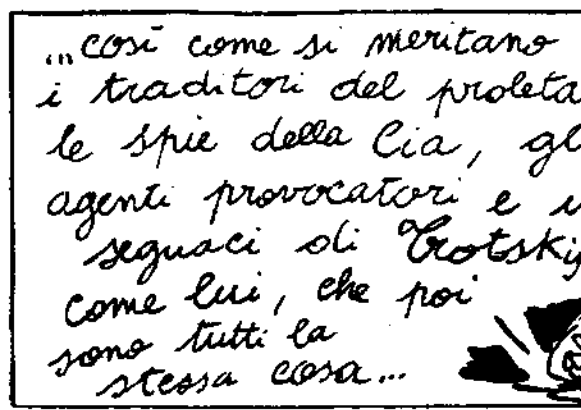 ...così come si meritano
i traditori del proleta
le spie della Cia, gl
agenti provocatori e i
seguaci di Trotskij
come lui, che poi
sono tutti la
stessa cosa...